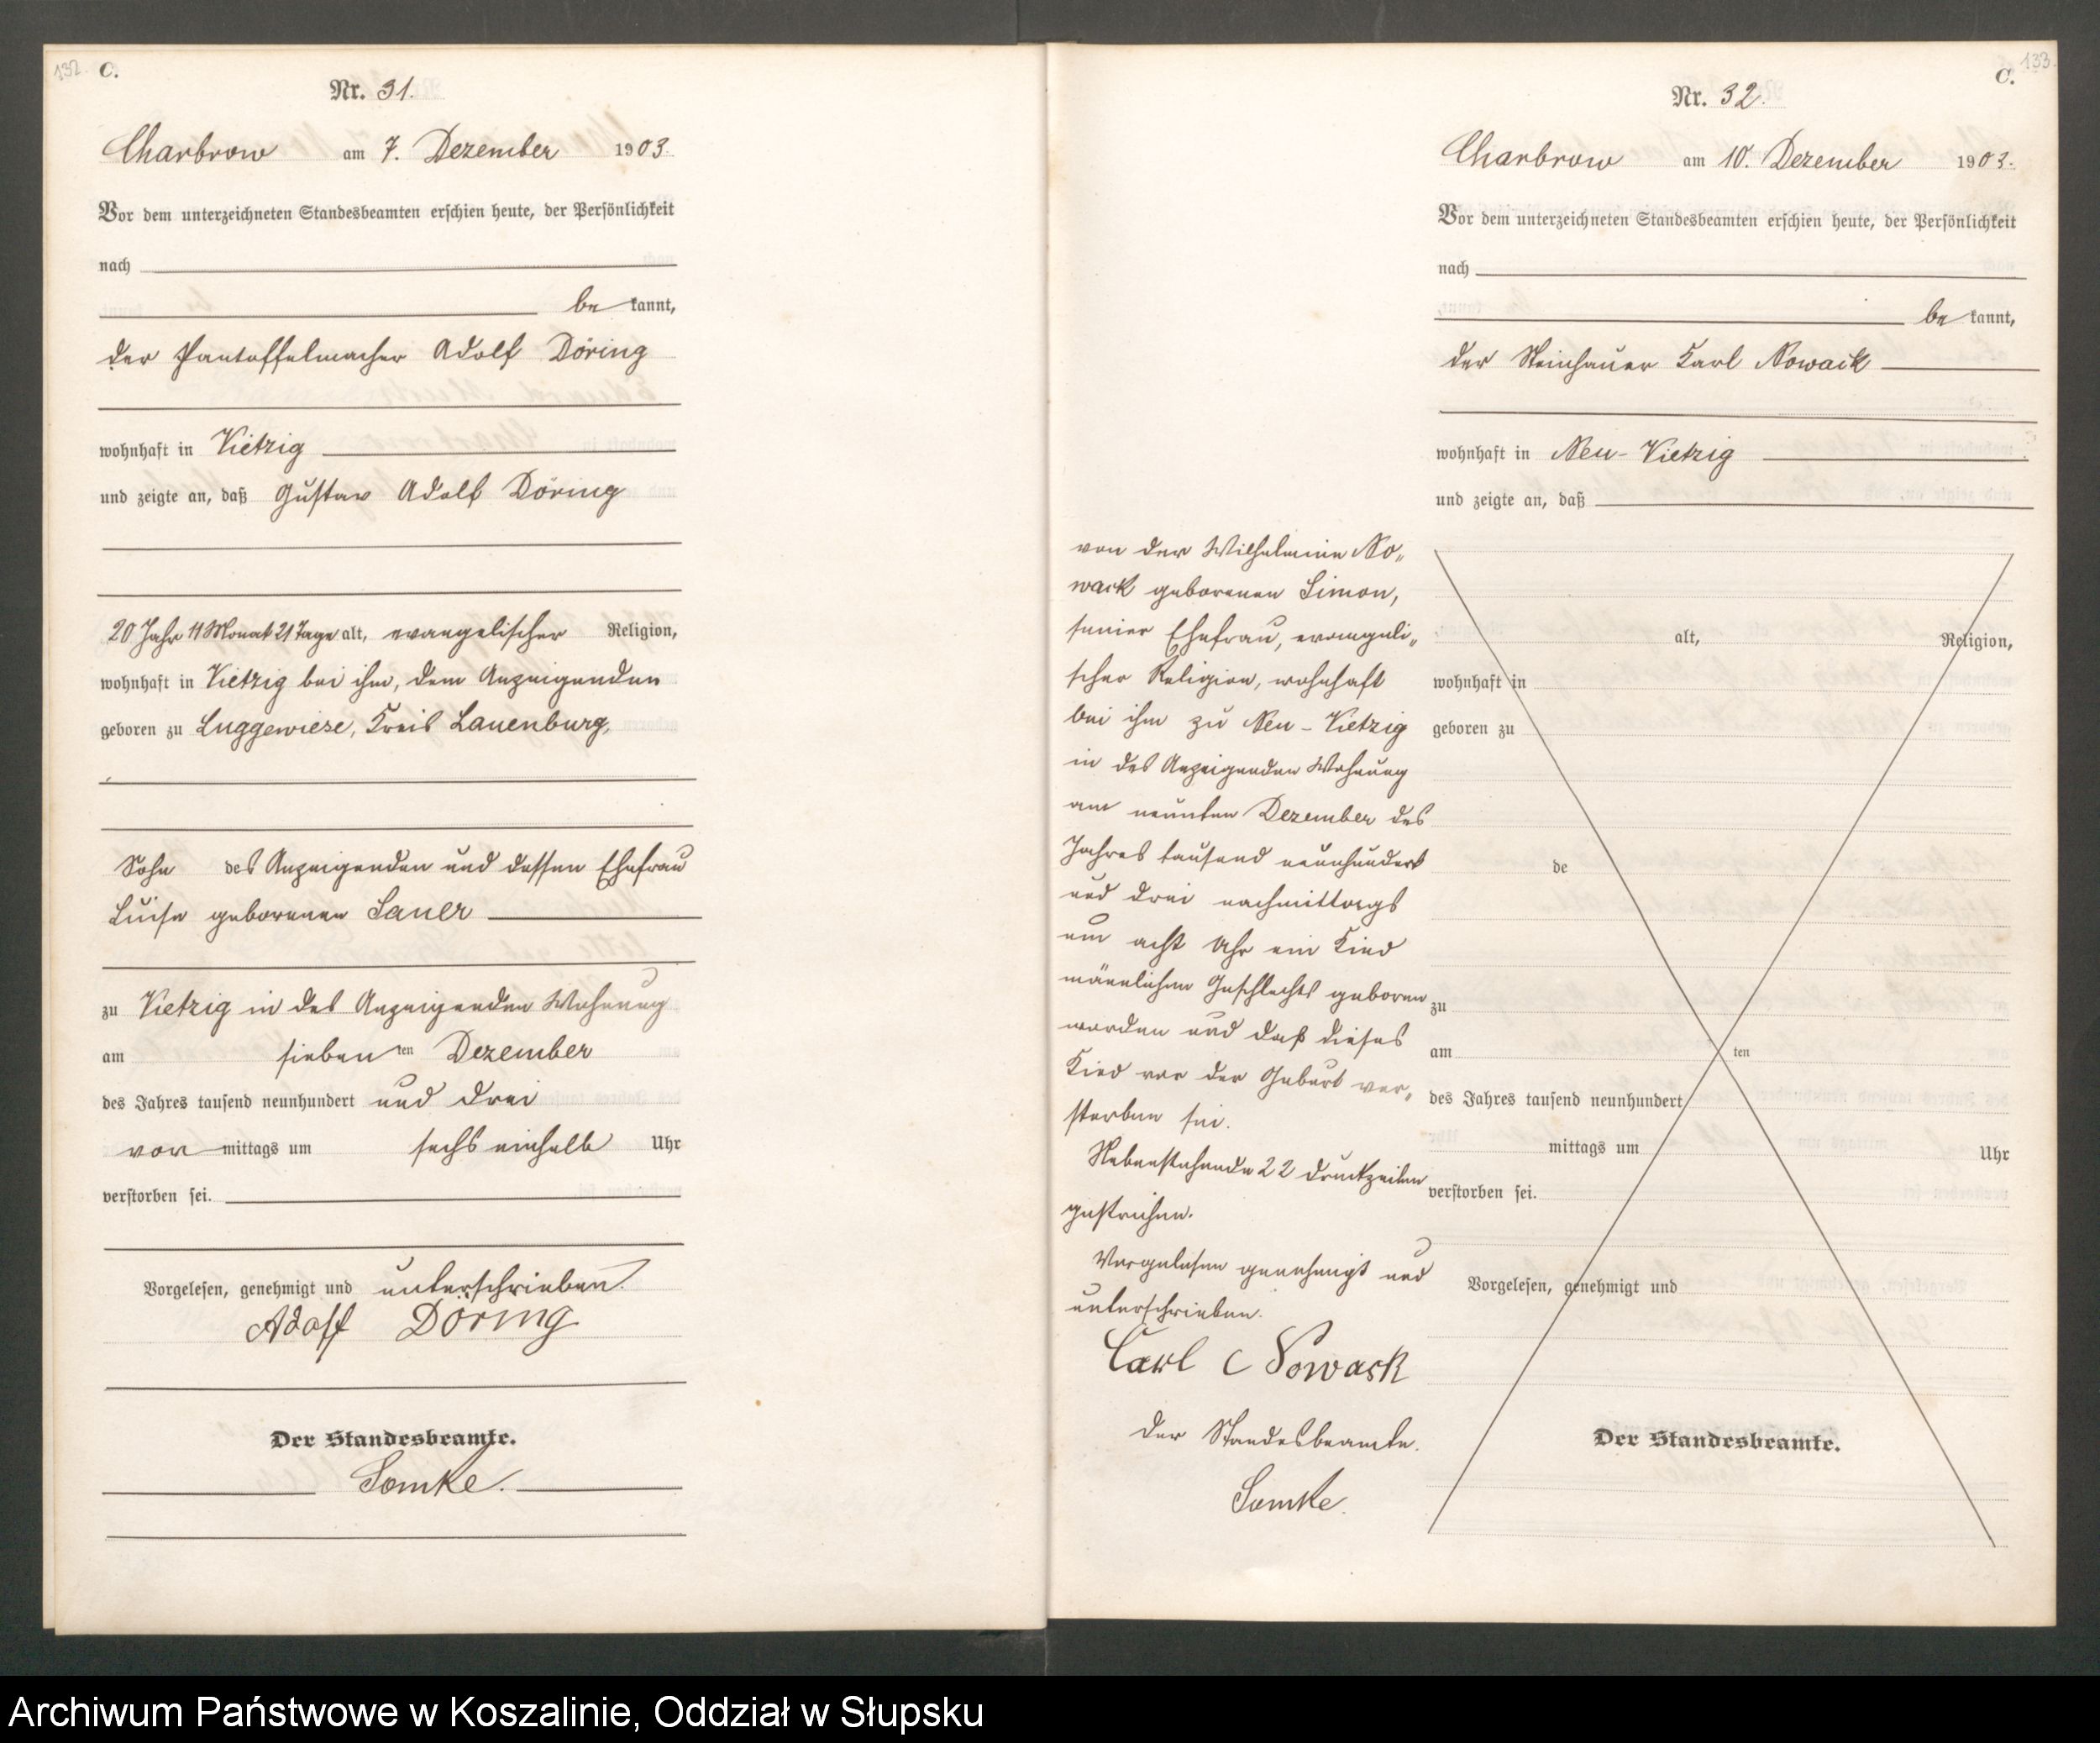 132. C.
Nr. 31.
Charbrow am 7. Dezember 1903.
Vor dem unterzeichneten Standesbeamten erschien heute, der Persönlichkeit
nach
be kannt,
der Pantoffelmacher Adolf Döring
wohnhaft in Vietzig
und zeigte an, daß Gustav Adolf Döring
20 Jahr 11 Monat 21 Tage alt, evangelischer Religion,
wohnhaft in Vietzig bei ihm, dem Anzeigenden
geboren zu Luggewiese, Kreis Lauenburg,
Sohn des Anzeigenden und dessen Ehefrau
Luise geborenen Sauer
zu Vietzig in des Anzeigenden Wohnung
am siebenten Dezember
des Jahres tausend neunhundert und drei
vor mittags um sechs einhalb Uhr
verstorben sei.
Vorgelesen, genehmigt und unterschrieben.
Adolf Döring
Der Standesbeamte.
Lomke.
133. C.
Nr. 32.
Charbrow am 10. Dezember 1903.
Vor dem unterzeichneten Standesbeamten erschien heute, der Persönlichkeit
nach
be kannt,
der Steinhauer Karl Nowack
wohnhaft in Neu-Vietzig
und zeigte an, daß
von der Wilhelmine No„
wack geborenen Simon,
seiner Ehefrau, evangeli„
scher Religion, wohnhaft
bei ihm zu Neu-Vietzig
in des Anzeigenden Wohnung
am neunten Dezember des
Jahres tausend neunhundert
und drei nachmittags
um acht Uhr ein Kind
männlichen Geschlechts geboren
worden und daß dieses
Kind vor der Geburt ver„
storben sei.
Nebenstehende 22 Druckzeilen
gestrichen.
Vorgelesen genehmigt und
unterschrieben.
Carl Nowack
Der Standesbeamte.
Lomke.
alt, Religion,
wohnhaft in
geboren zu
de
zu
am ten
des Jahres tausend neunhundert
mittags um Uhr
verstorben sei.
Vorgelesen, genehmigt und
Der Standesbeamte.
Archiwum Państwowe w Koszalinie, Oddział w Słupsku